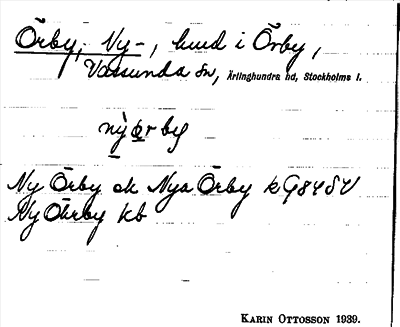 Örby, Ny-, hmd i Örby,
Vassunda sn, Ärlinghundra hd, Stockholms l.
nỳørby
Ny Örby ch Nya Örby k G84SV
Ny Öhrby kb
KARIN OTTOSSON 1939.